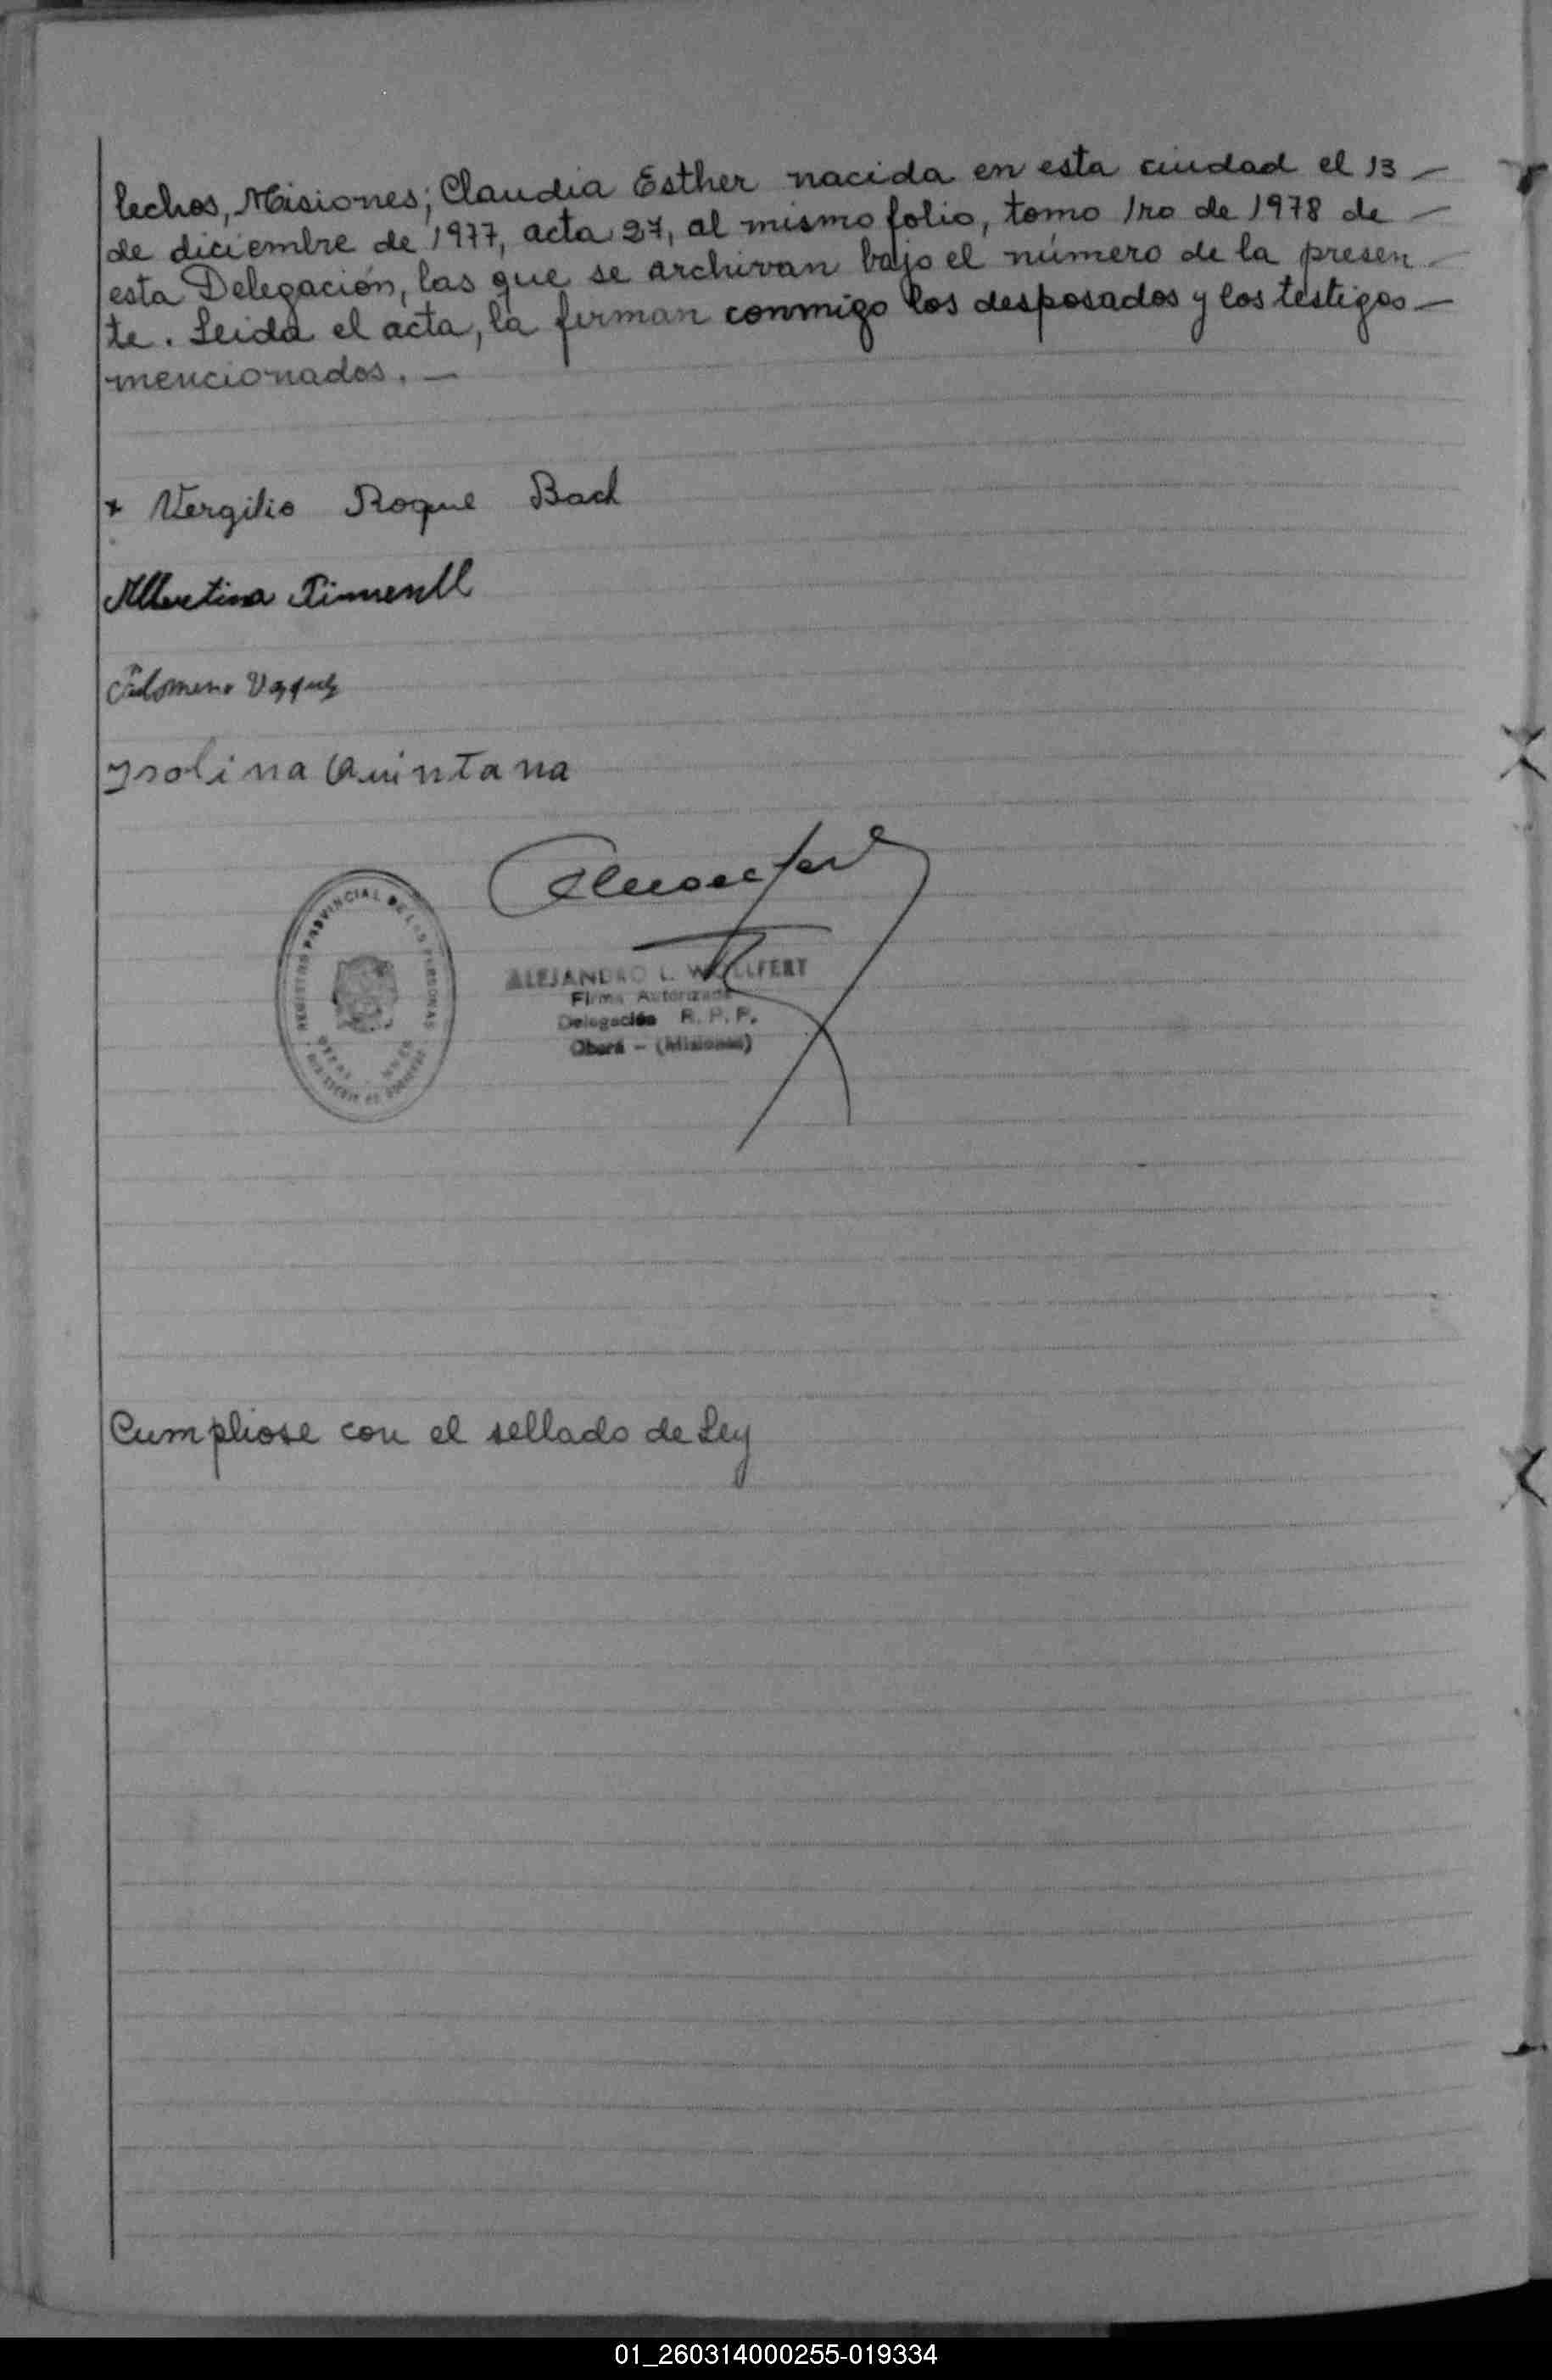 lechos, Misiones; Claudia Esther nacida en esta ciudad el 13 —
de diciembre de 1977, acta 27, al mismo folio, tomo 1ro de 1978 de —
esta Delegación, las que se archivan bajo el número de la presen
te. Leida el acta, la firman conmigo los desposados y los testigos —
mencionados. —
Vergilio Roque Bach
Albertina Pimentel
Filomeno
Ysolina Quintana
REGISTRO PROVINCIAL DE LAS PERSONAS
ALEJANDRO L. WOLLFERT
Firma Autorizada
Delegación R. P. P.
Oberá - (Misiones)
Cumpliose con el sellado de Ley
01_260314000255-019334